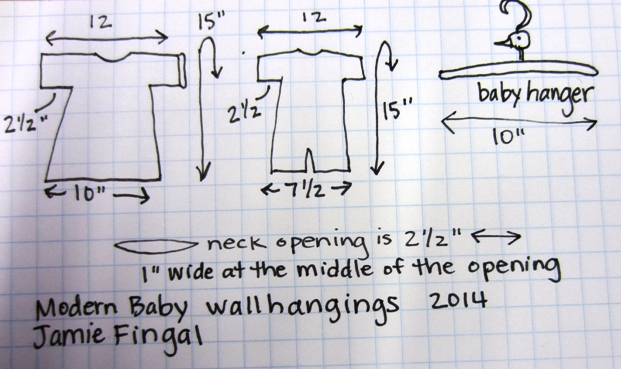 12
15"
2½"
10"
12
15"
2½
7½
baby hanger
10"
neck opening is 2½"
1" wide at the middle of the opening
Modern Baby wallhangings 2014
Jamie Fingal